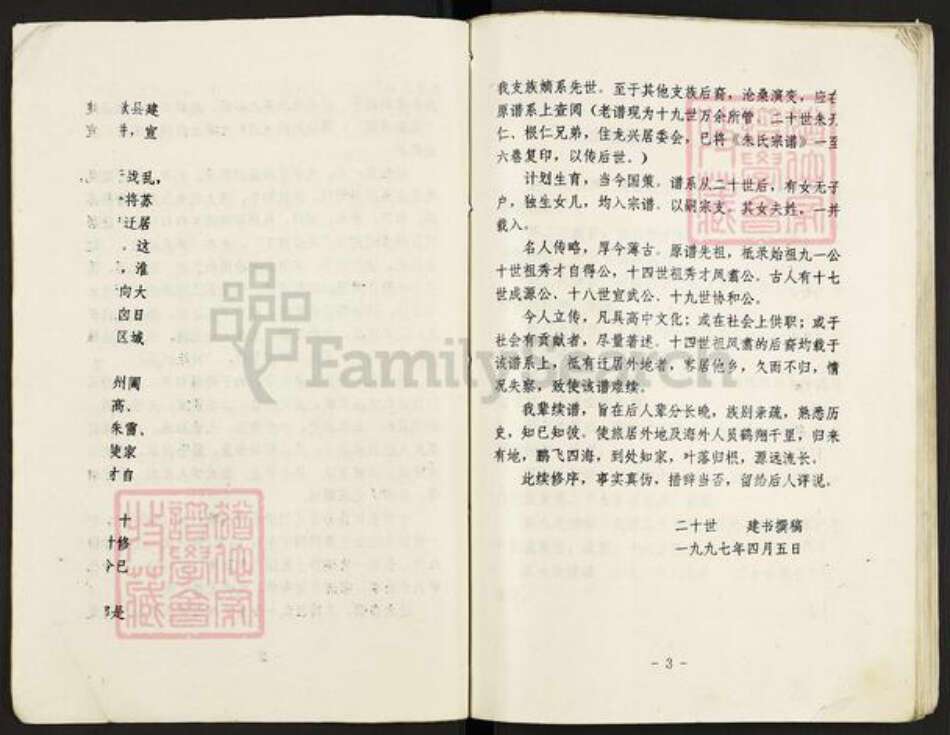 县建
宣
战乱，
将苏
迁居
这
淮
向大
囟日
区城
州阖
高、
朱雷、
家
才自
十
修
是
我支族嫡系先世。至于其他支族后裔，沧桑演变，应在
原谱系上查阅（老谱现为十九世万余所管，二十世朱
仁、根仁兄弟，住龙兴居委会，已将《朱氏宗谱》一至
六卷复印，以传后世。）
计划生育，当今国策。谱系从二十世后，有女无子
户，独生女儿，均入宗谱。以嗣宗支，其女夫姓，一并
载入。
名人传略，厚今薄古。原谱先祖，祗录始祖九一公
十世祖秀才自得公，十四世祖秀才凤翥公。古人有十七
世成源公、十八世宣武公、十九世协和公。
今人立传，凡具高中文化；或在社会上供职；或于
社会有贡献者，尽量著述。十四世祖凤翥的后裔均载于
该谱系上，祗有迁居外地者，客居他乡，久而不归，情
况失察，致使该谱难续。
我辈续谱，旨在后人辈分长晚，族别亲疏，熟悉历
史，知己知彼。使旅居外地及海外人员鹤翔千里，归来
有地，鹏飞四海，到处知家，叶落归根，源远流长。
此续修序，事实真伪，措辞当否，留给后人评说。
二十世 建书撰稿
一九九七年四月五日
- 3 -
FamilySearch